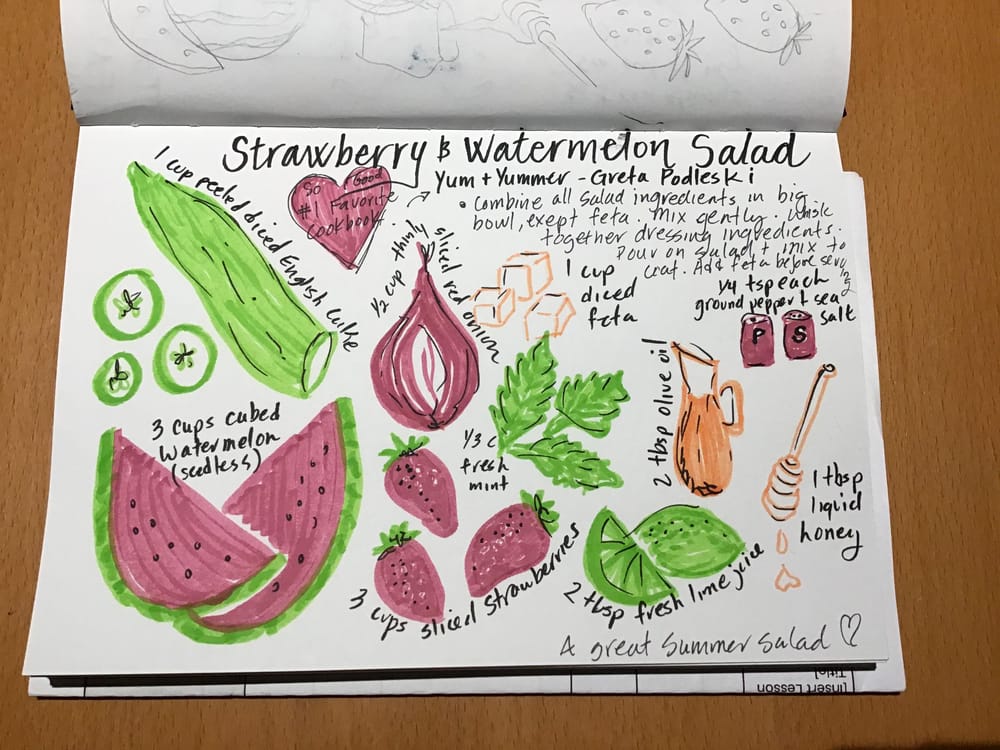 Strawberry & Watermelon Salad
Yum + Yummer - Greta Podleski
So Good
#1 Favorite
Cookbook
• Combine all Salad ingredients in big
bowl, exept feta. Mix gently. Whisk
together dressing ingredients.
Pour on salad + mix to
coat. Add feta before serving
1 cup peeled diced English cuke
1/2 cup thinly sliced red onion
1 cup
diced
feta
1/4 tsp each
ground pepper & sea
salt
P S
3 cups cubed
watermelon
(seedless)
1/3 c
fresh
mint
2 tbsp olive oil
1 tbsp
liquid
honey
3 cups sliced strawberries
2 tbsp fresh lime juice
A great summer salad
[Insert Lesson
Title]